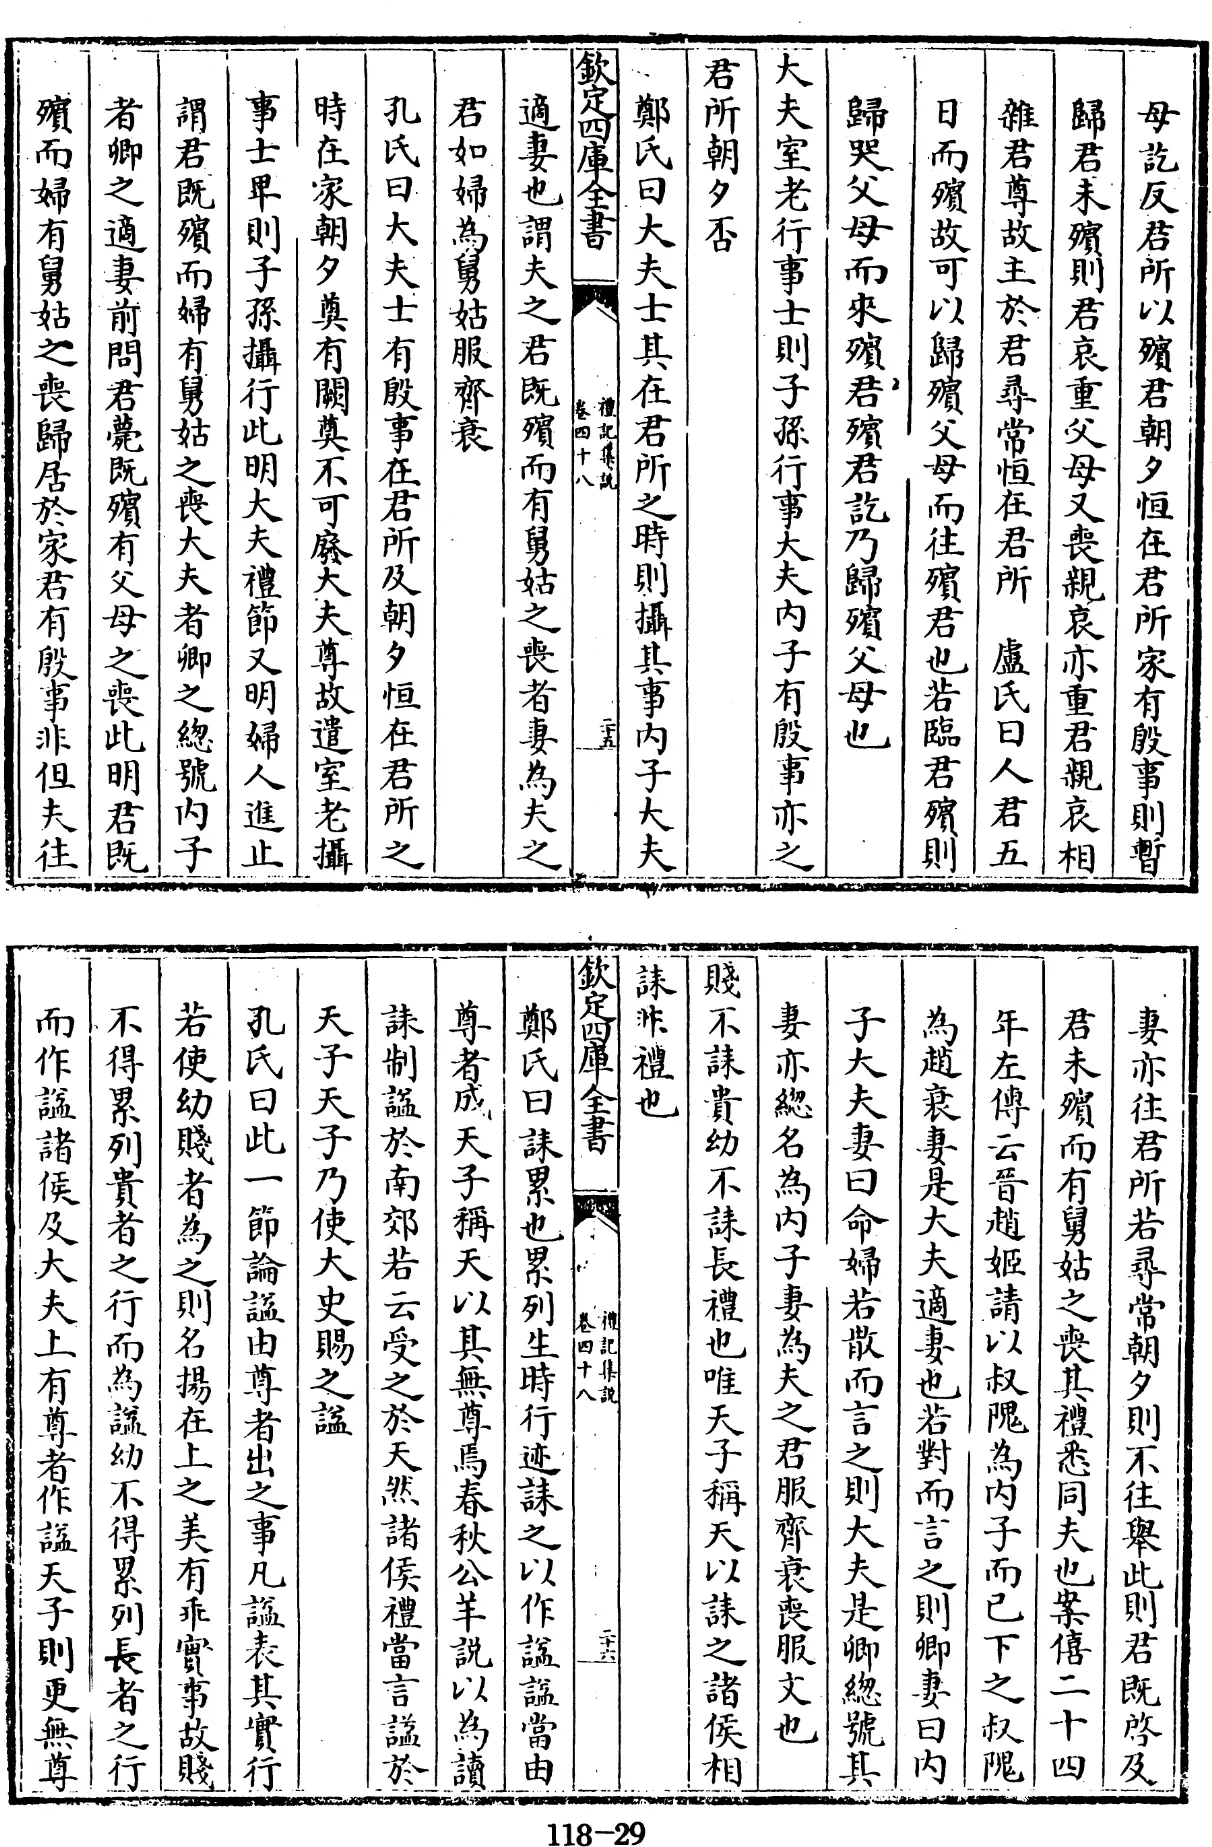 母訖反君所以殯君朝夕恒在君所家有殷事則暫
歸君未殯則君哀重父母又喪親哀亦重君親哀相
雜君尊故主於君尋常恒在君所　盧氏曰人君五
日而殯故可以歸殯父母而往殯君也若臨君殯則
歸哭父母而來殯君殯君訖乃歸殯父母也
大夫室老行事士則子孫行事大夫内子有殷事亦之
君所朝夕否
鄭氏曰大夫士其在君所之時則攝其事内子大夫
欽定四庫全書
禮記集說
卷四十八
二十五
適妻也謂夫之君既殯而有舅姑之喪者妻為夫之
君如婦為舅姑服齊衰
孔氏曰大夫士有殷事在君所及朝夕恒在君所之
時在家朝夕奠有闕奠不可廢大夫尊故遣室老攝
事士卑則子孫攝行此明大夫禮節又明婦人進止
謂君既殯而婦有舅姑之喪大夫者卿之緫號内子
者卿之適妻前問君薨既殯有父母之喪此明君既
殯而婦有舅姑之喪歸居於家君有殷事非但夫往
妻亦往君所若尋常朝夕則不往舉此則君既啓及
君未殯而有舅姑之喪其禮悉同夫也案僖二十四
年左傳云晉趙姬請以叔隗為内子而已下之叔隗
為趙衰妻是大夫適妻也若對而言之則卿妻曰内
子大夫妻曰命婦若散而言之則大夫是卿緫號其
妻亦緫名為内子妻為夫之君服齊衰喪服文也
賤不誄貴幼不誄長禮也唯天子稱天以誄之諸侯相
誄非禮也
欽定四庫全書
禮記集說
卷四十八
二十六
鄭氏曰誄累也累列生時行迹誄之以作諡諡當由
尊者成天子稱天以其無尊焉春秋公羊説以為讀
誄制諡於南郊若云受之於天然諸侯禮當言諡於
天子天子乃使大史賜之諡
孔氏曰此一節論諡由尊者出之事凡諡表其實行
若使幼賤者為之則名揚在上之美有乖實事故賤
不得累列貴者之行而為諡幼不得累列長者之行
而作諡諸侯及大夫上有尊者作諡天子則更無尊
118-29